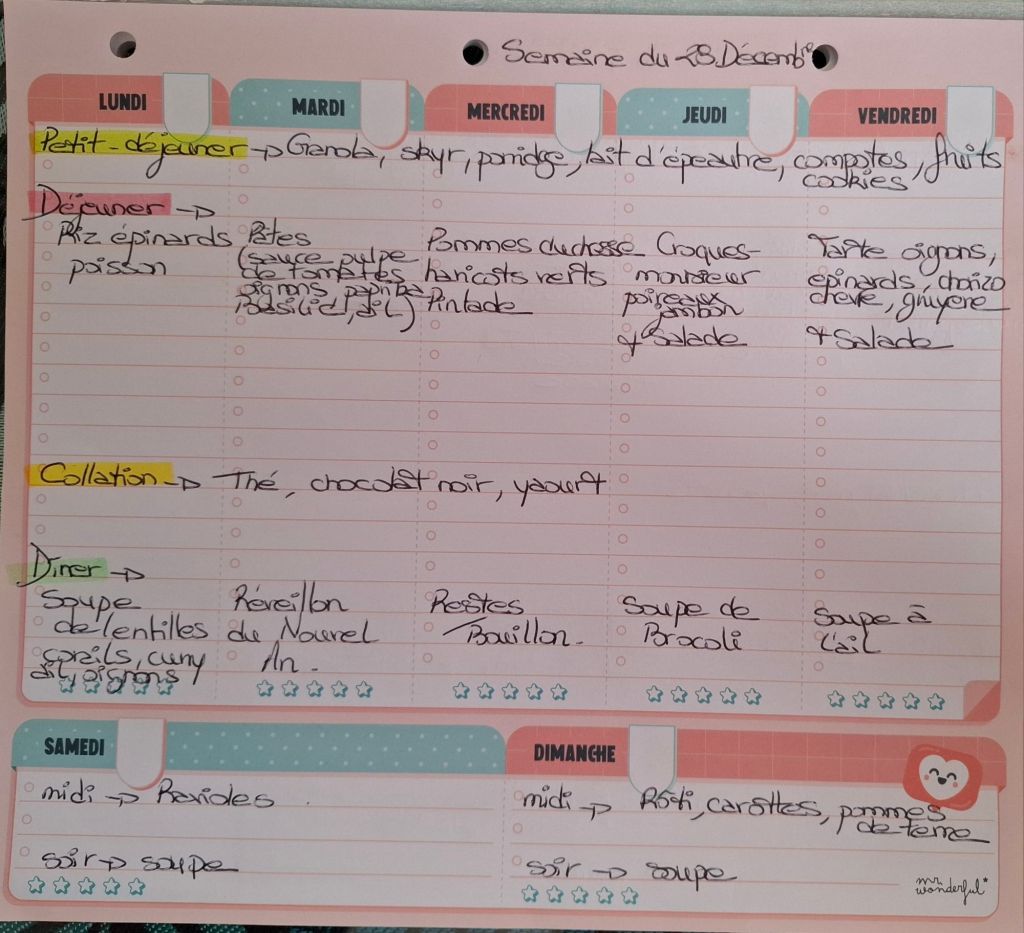 Semaine du 28 Décembre
LUNDI MARDI MERCREDI JEUDI VENDREDI
Petit-déjeuner → Granola, skyr, porridge, lait d'épeautre, compotes, fruits
cookies
Déjeuner →
Riz épinards
poisson
Pâtes
(sauce pulpe
de tomates
oignons, paprika
Basilic, ail)
Pommes duchesse
haricots verts
Pintade
Croques-
monsieur
poireaux
jambon
+ Salade
Tarte oignons,
épinards, chorizo
chèvre, gruyère
+ Salade
Collation → Thé, chocolat noir, yaourt
Dîner →
Soupe
de lentilles
corails, curry
ail, oignons
Réveillon
du Nouvel
An.
Restes
/Bouillon.
Soupe de
Brocoli
Soupe à
l'ail
SAMEDI
midi → Ravioles
soir → soupe
DIMANCHE
midi → Rôti, carottes, pommes
de terre
soir → soupe
mr.
wonderful*